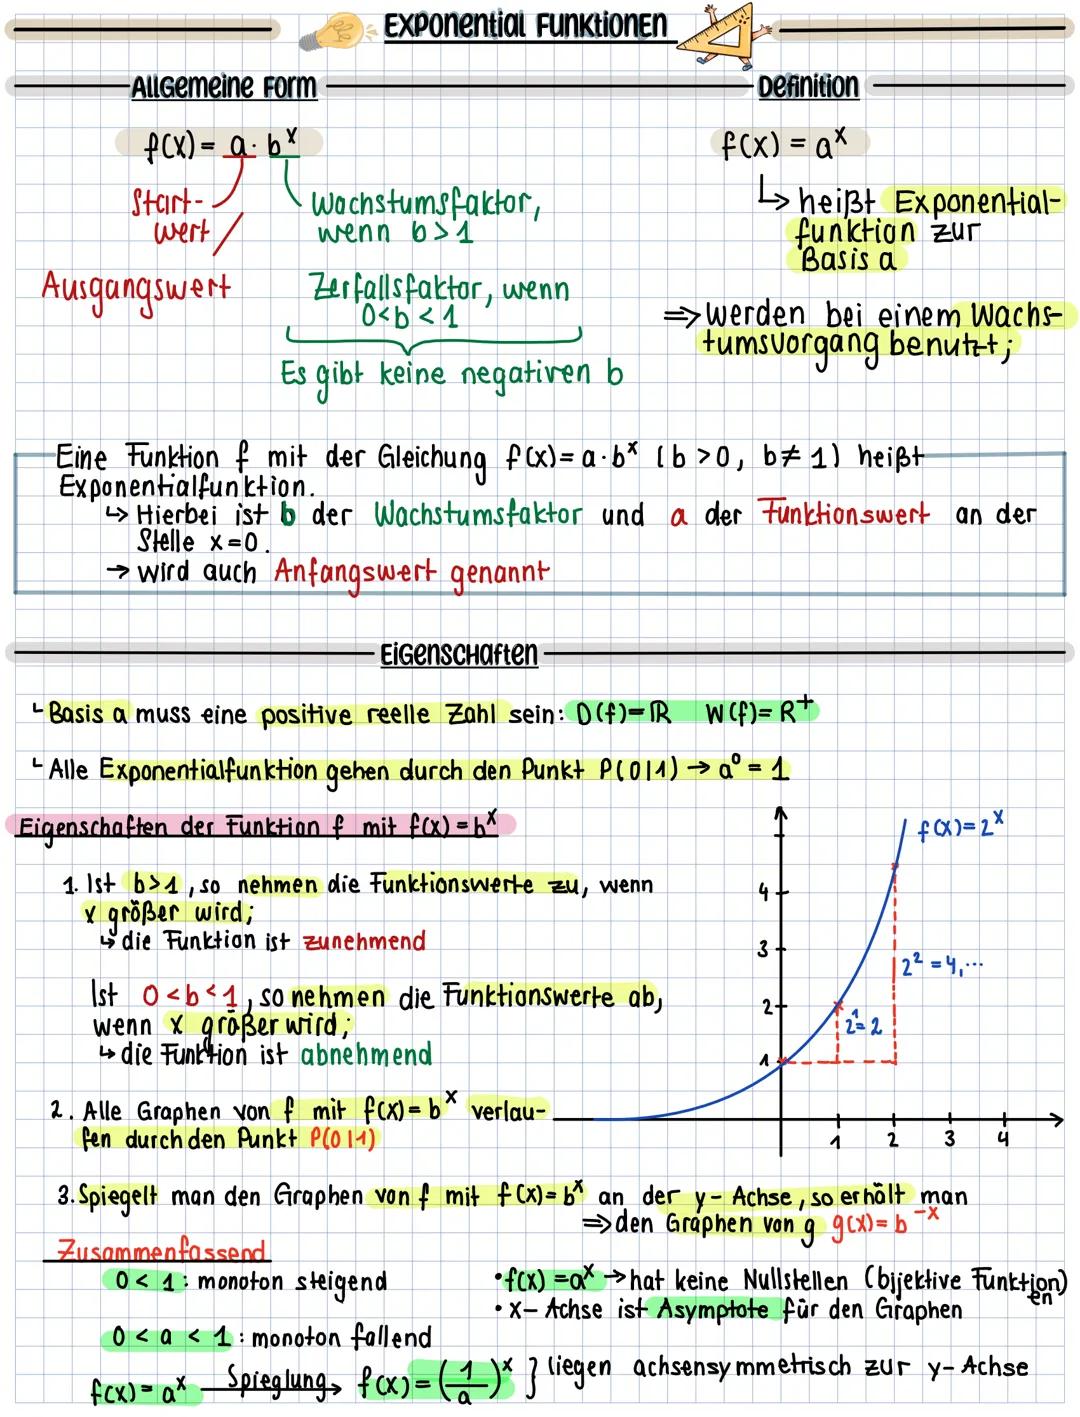 Exponential Funktionen
Allgemeine Form
Definition
f(x) = a · b^x
Start-
wert
Ausgangswert
Wachstumsfaktor,
wenn b > 1
Zerfallsfaktor, wenn
0 < b < 1
Es gibt keine negativen b
f(x) = a^x
↳ heißt Exponential-
funktion zur
Basis a
⇒ werden bei einem Wachs-
tumsvorgang benutzt;
Eine Funktion f mit der Gleichung f(x) = a · b^x (b > 0, b ≠ 1) heißt
Exponentialfunktion.
↳ Hierbei ist b der Wachstumsfaktor und a der Funktionswert an der
Stelle x = 0.
→ wird auch Anfangswert genannt
Eigenschaften
└ Basis a muss eine positive reelle Zahl sein: D(f) = ℝ W(f) = R^+
└ Alle Exponentialfunktion gehen durch den Punkt P(0|1) → a^0 = 1
Eigenschaften der Funktion f mit f(x) = b^x
1. Ist b > 1, so nehmen die Funktionswerte zu, wenn
x größer wird;
↳ die Funktion ist zunehmend
Ist 0 < b < 1, so nehmen die Funktionswerte ab,
wenn x größer wird;
↳ die Funktion ist abnehmend
2. Alle Graphen von f mit f(x) = b^x verlau-
fen durch den Punkt P(0|1)
f(x) = 2^x
4
3
2
1
2^2 = 4,...
2^1 = 2
1 2 3 4
3. Spiegelt man den Graphen von f mit f(x) = b^x an der y-Achse, so erhält man
⇒ den Graphen von g g(x) = b^-x
Zusammenfassend
0 < 1: monoton steigend
0 < a < 1: monoton fallend
• f(x) = a^x → hat keine Nullstellen (bijektive Funktion)
en
• x-Achse ist Asymptote für den Graphen
f(x) = a^x Spieglung → f(x) = (1/a)^x } liegen achsensymmetrisch zur y-Achse